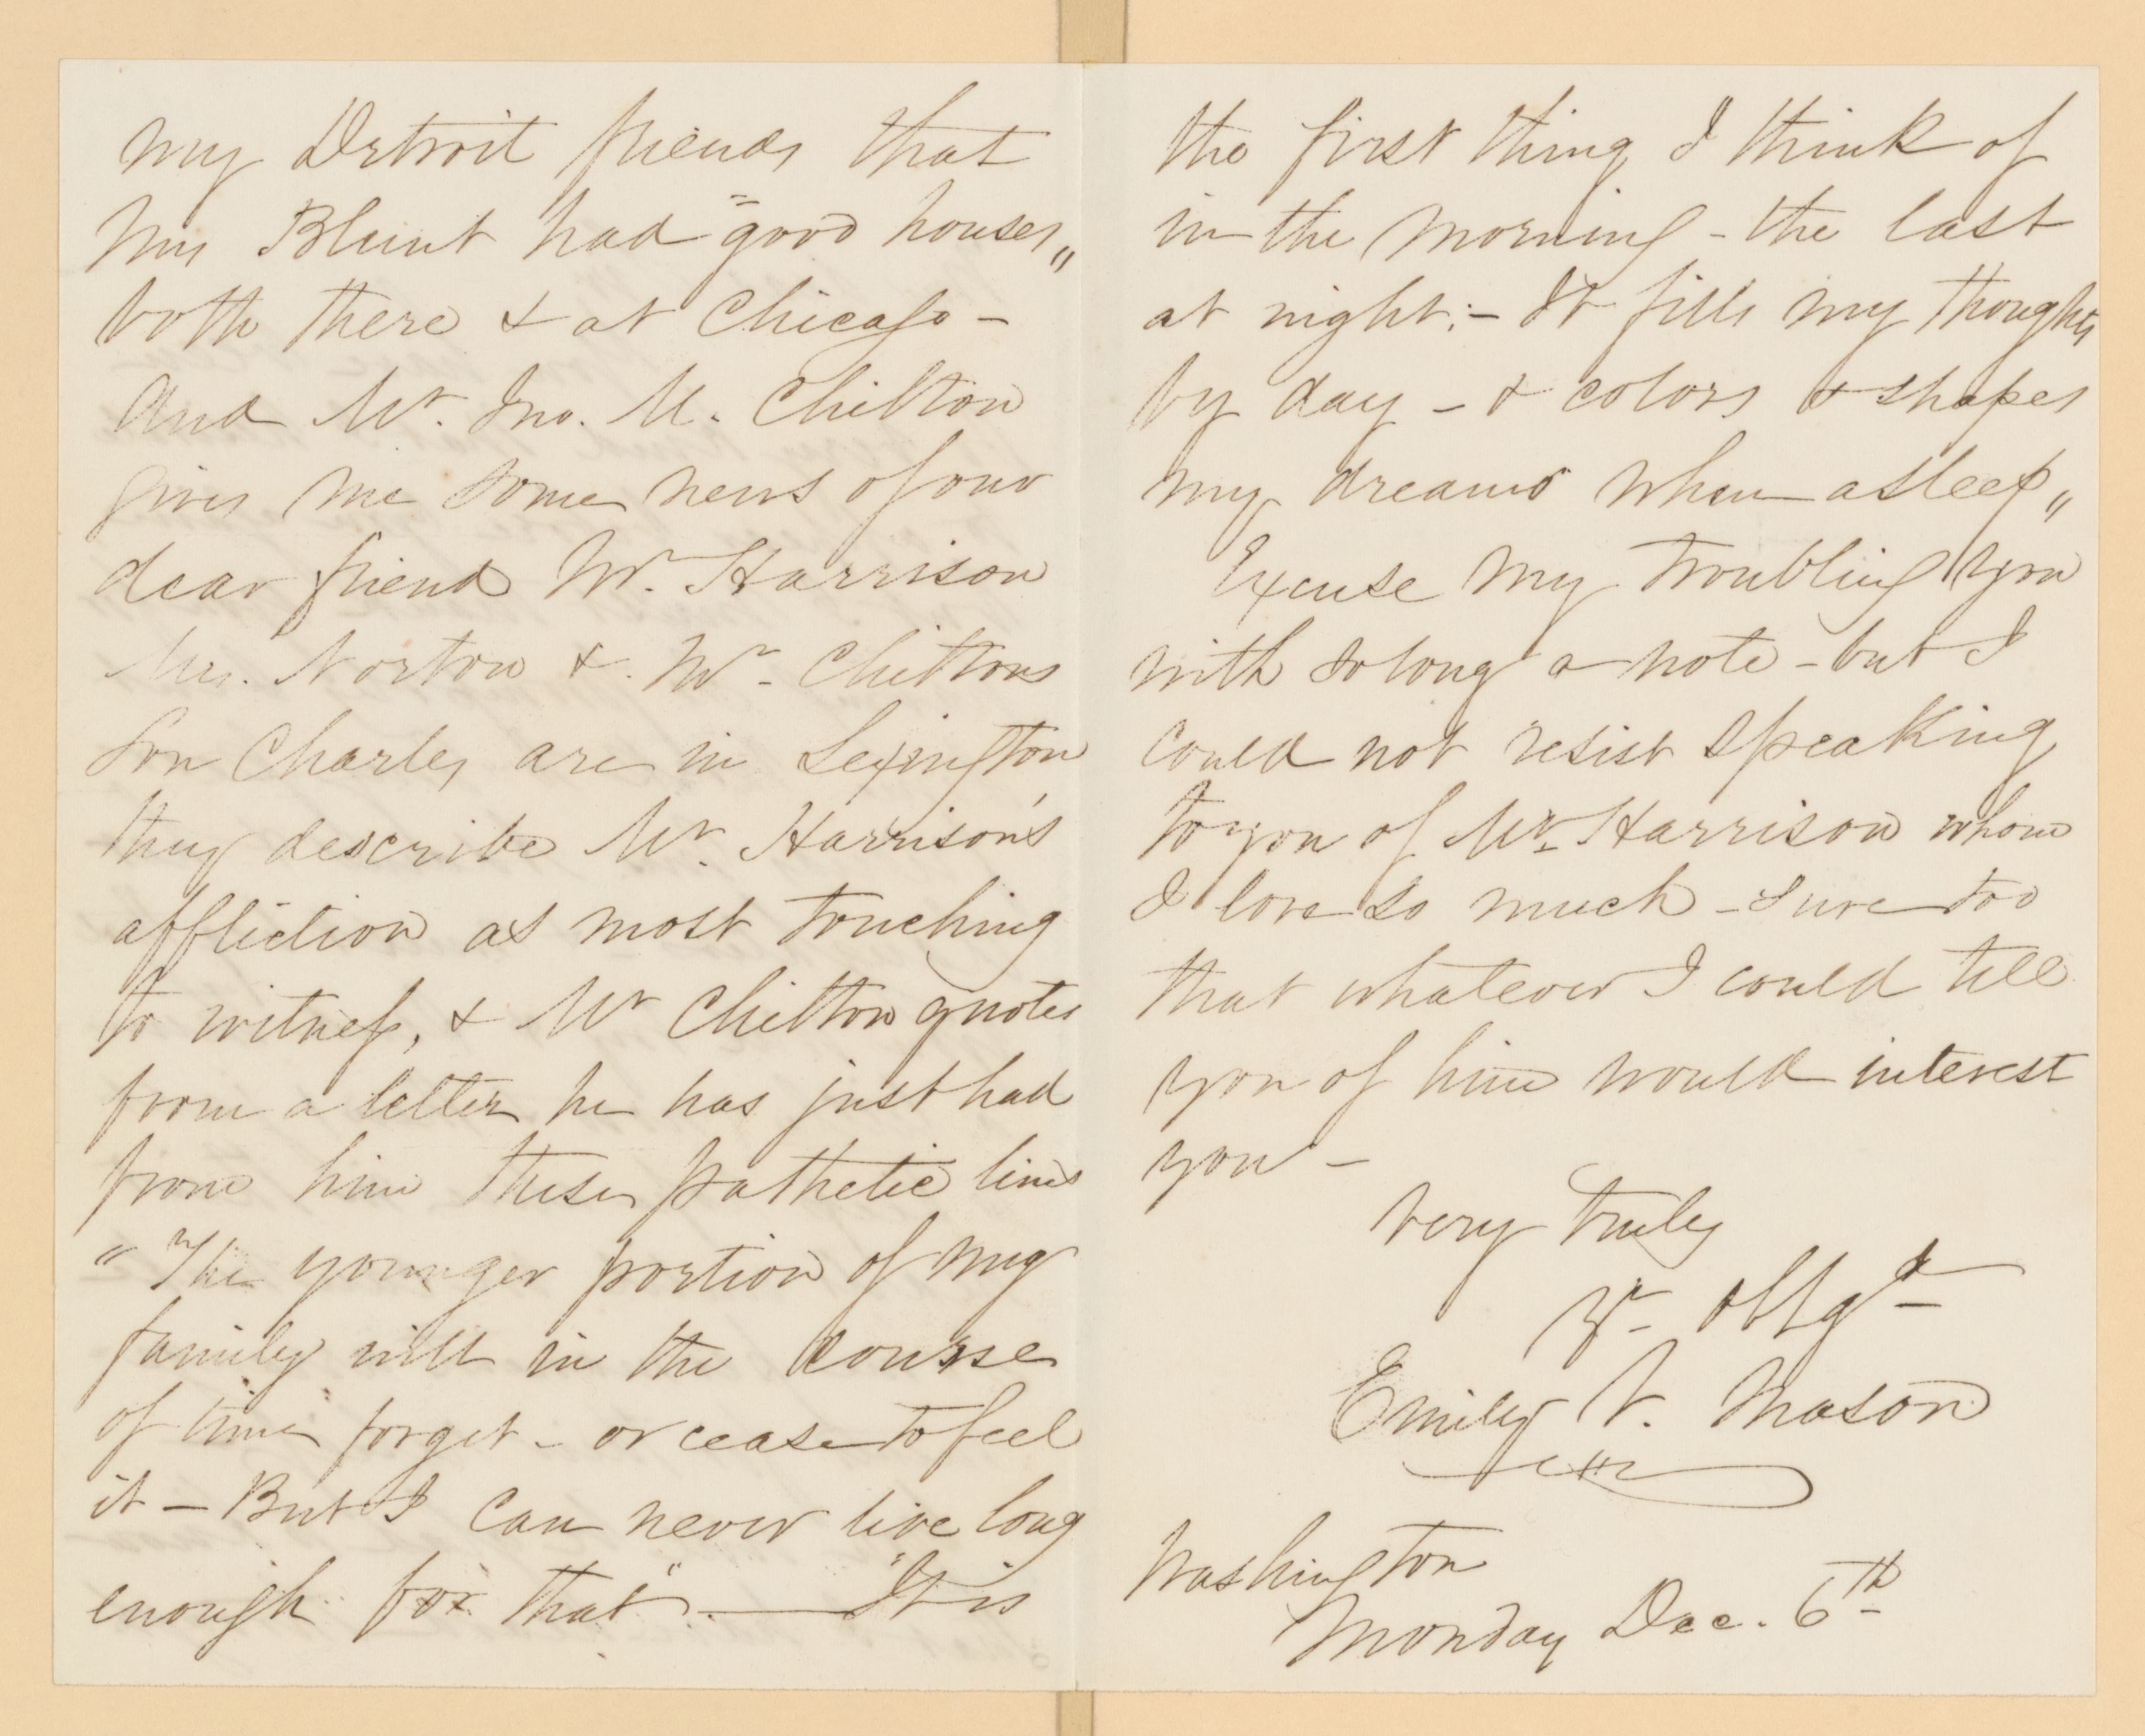 my Detroit friends that
Mrs Blunt had "good houses"
both there & at Chicago -
And Mr. Jno. M. Chilton
gives me some news of our
dear friend Mr. Harrison
Mrs. Norton & Mr. Chiltons
son Charley are in Lexington
they describe Mr. Harrison's
affliction as most touching
to witness, & Mr Chilton quotes
from a letter he has just had
from him these pathetic lines
"The younger portion of my
family will in the course
of time forget - or cease to feel
it - But I can never live long
enough for that". — "It is
the first thing I think of
in the morning - the last
at night:- It fills my thoughts
by day - & colors & shapes
my dreams when asleep"
Excuse my troubling you
with so long a note - but I
could not resist speaking
to you of Mr. Harrison whom
I love so much - sure too
that whatever I could tell
you of him would interest
you -
Very truly
Yr. oblgd
Emily V. Mason
Washington
Monday Dec. 6th